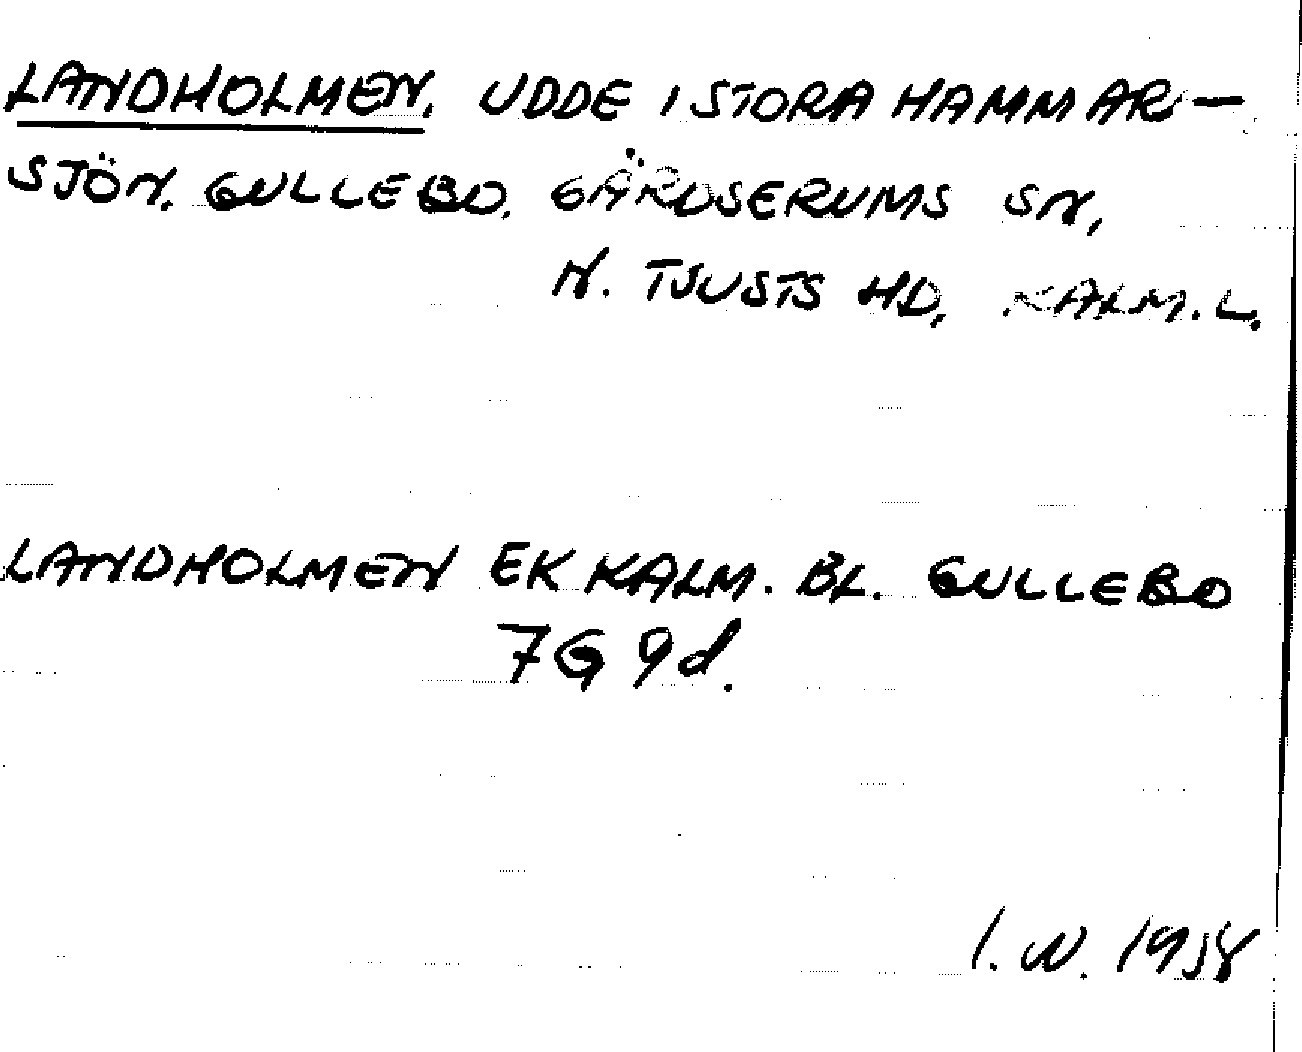 LANDHOLMEN, UDDE I STORA HAMMAR-
SJÖN. GULLEBO. GÄRDSERUMS SN,
N. TJUSTS HD, KALM. L.
LANDHOLMEN EK KALM. BL. GULLEBO
7G 9d.
I. W. 1958